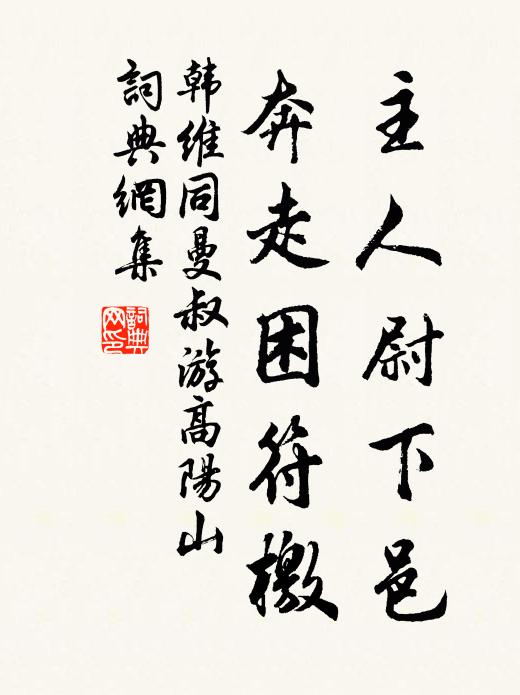 主人尉下邑
奔走困符檄
韩维同曼叔游高陽山
詞典網集
詞典网印